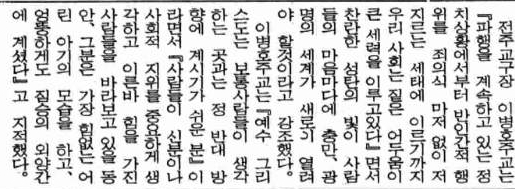 전주교구장 이병호주교는
『파행을 계속하고 있는 정
치상황에서부터 반인간적 행
위를 죄의식 마저 없이 저
지르는 세태에 이르기까지
우리 사회는 짙은 어두움이
큰 세력을 이루고있다』면서
찬란한 성탄의 빛이 사람
들의 마음마다에 충만, 광
명의 세계가 새로이 열려
야 할것이라고 강조했다.
이병호주교는 『예수 그리
스도는 보통사람들이 생각
하는 곳과는 정 반대 방
향에 계시기가 쉬운 분』이
라면서 『사람들이 신분이나
사회적 지위를 중요하게 생
각하고 이른바 힘을 가진
사람들을 바라보고 있을 동
안, 그분은 가장 힘없는 어
린 아기의 모습을 하고,
엉뚱하게도 짐승의 외양간
에 계셨다』고 지적했다.